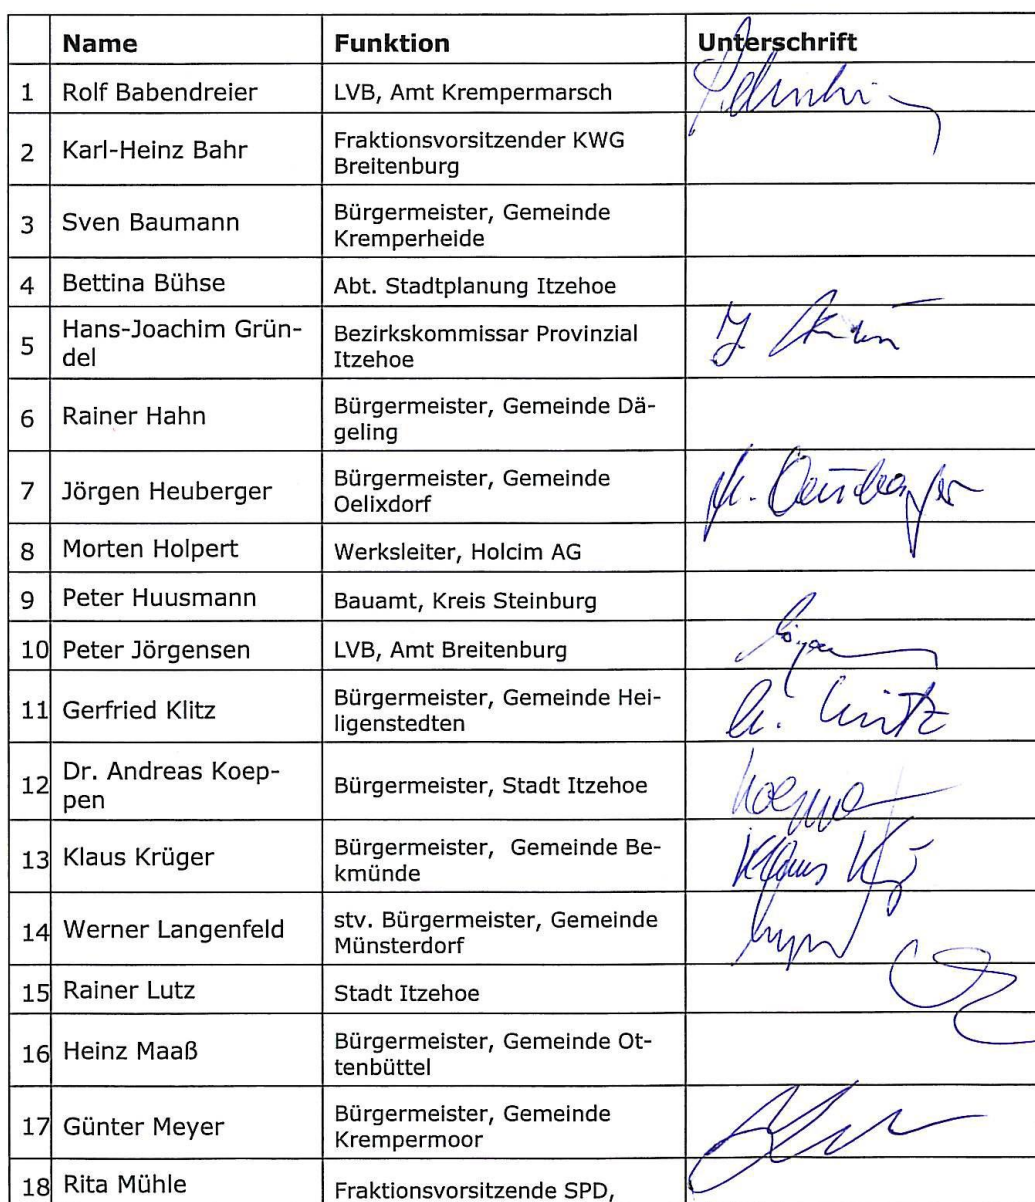 Name Funktion Unterschrift
1 Rolf Babendreier LVB, Amt Krempermarsch
2 Karl-Heinz Bahr Fraktionsvorsitzender KWG
Breitenburg
3 Sven Baumann Bürgermeister, Gemeinde
Kremperheide
4 Bettina Bühse Abt. Stadtplanung Itzehoe
5 Hans-Joachim Grün-
del Bezirkskommissar Provinzial
Itzehoe
6 Rainer Hahn Bürgermeister, Gemeinde Dä-
geling
7 Jörgen Heuberger Bürgermeister, Gemeinde
Oelixdorf
8 Morten Holpert Werksleiter, Holcim AG
9 Peter Huusmann Bauamt, Kreis Steinburg
10 Peter Jörgensen LVB, Amt Breitenburg
11 Gerfried Klitz Bürgermeister, Gemeinde Hei-
ligenstedten
12 Dr. Andreas Koep-
pen Bürgermeister, Stadt Itzehoe
13 Klaus Krüger Bürgermeister, Gemeinde Be-
kmünde Klaus
14 Werner Langenfeld stv. Bürgermeister, Gemeinde
Münsterdorf
15 Rainer Lutz Stadt Itzehoe
16 Heinz Maaß Bürgermeister, Gemeinde Ot-
tenbüttel
17 Günter Meyer Bürgermeister, Gemeinde
Krempermoor
18 Rita Mühle Fraktionsvorsitzende SPD,